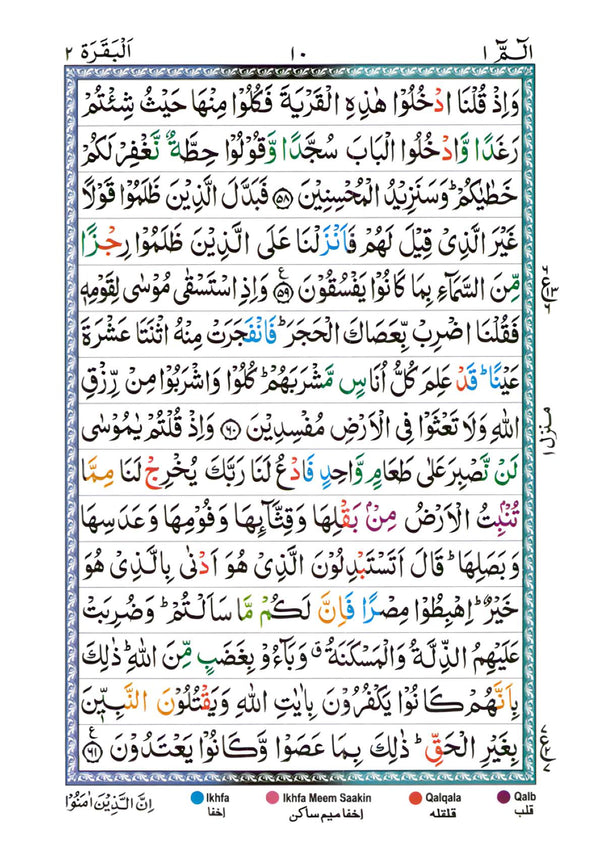 الٓمّٓ ١ ١٠ اَلْبَقَرَة ٢
وَاِذْ قُلْنَا ادْخُلُوْا هٰذِهِ الْقَرْيَةَ فَكُلُوْا مِنْهَا حَيْثُ شِئْتُمْ
رَغَدًا وَّادْخُلُوا الْبَابَ سُجَّدًا وَّقُوْلُوْا حِطَّةٌ نَّغْفِرْ لَكُمْ
خَطٰيٰكُمْ ؕ وَسَنَزِيْدُ الْمُحْسِنِيْنَ ﴿۵۸﴾ فَبَدَّلَ الَّذِيْنَ ظَلَمُوْا قَوْلًا
غَيْرَ الَّذِىْ قِيْلَ لَهُمْ فَاَنْزَلْنَا عَلَى الَّذِيْنَ ظَلَمُوْا رِجْزًا
مِّنَ السَّمَآءِ بِمَا كَانُوْا يَفْسُقُوْنَ ﴿۵۹﴾ ع وَاِذِ اسْتَسْقٰى مُوْسٰى لِقَوْمِهٖ
فَقُلْنَا اضْرِبْ بِّعَصَاكَ الْحَجَرَ ؕ فَانْفَجَرَتْ مِنْهُ اثْنَتَا عَشْرَةَ
عَيْنًا ؕ قَدْ عَلِمَ كُلُّ اُنَاسٍ مَّشْرَبَهُمْ ؕ كُلُوْا وَاشْرَبُوْا مِنْ رِّزْقِ
اللّٰهِ وَلَا تَعْثَوْا فِى الْاَرْضِ مُفْسِدِيْنَ ﴿۶۰﴾ وَاِذْ قُلْتُمْ يٰمُوْسٰى
منزل ١
لَنْ نَّصْبِرَ عَلٰى طَعَامٍ وَّاحِدٍ فَادْعُ لَنَا رَبَّكَ يُخْرِجْ لَنَا مِمَّا
تُنْۢبِتُ الْاَرْضُ مِنْۢ بَقْلِهَا وَقِثَّآئِهَا وَفُوْمِهَا وَعَدَسِهَا
وَبَصَلِهَا ؕ قَالَ اَتَسْتَبْدِلُوْنَ الَّذِىْ هُوَ اَدْنٰى بِالَّذِىْ هُوَ
خَيْرٌ ؕ اِهْبِطُوْا مِصْرًا فَاِنَّ لَكُمْ مَّا سَاَلْتُمْ ؕ وَضُرِبَتْ
عَلَيْهِمُ الذِّلَّةُ وَالْمَسْكَنَةُ ۗ وَبَآءُوْ بِغَضَبٍ مِّنَ اللّٰهِ ؕ ذٰلِكَ
بِاَنَّهُمْ كَانُوْا يَكْفُرُوْنَ بِاٰيٰتِ اللّٰهِ وَيَقْتُلُوْنَ النَّبِيّٖنَ
بِغَيْرِ الْحَقِّ ؕ ذٰلِكَ بِمَا عَصَوْا وَّكَانُوْا يَعْتَدُوْنَ ﴿۶۱﴾ ع
اِنَّ الَّذِيْنَ اٰمَنُوْا
Ikhfa Ikhfa Meem Saakin Qalqala Qalb
اخفا اخفا میم ساکن قلقله قلب